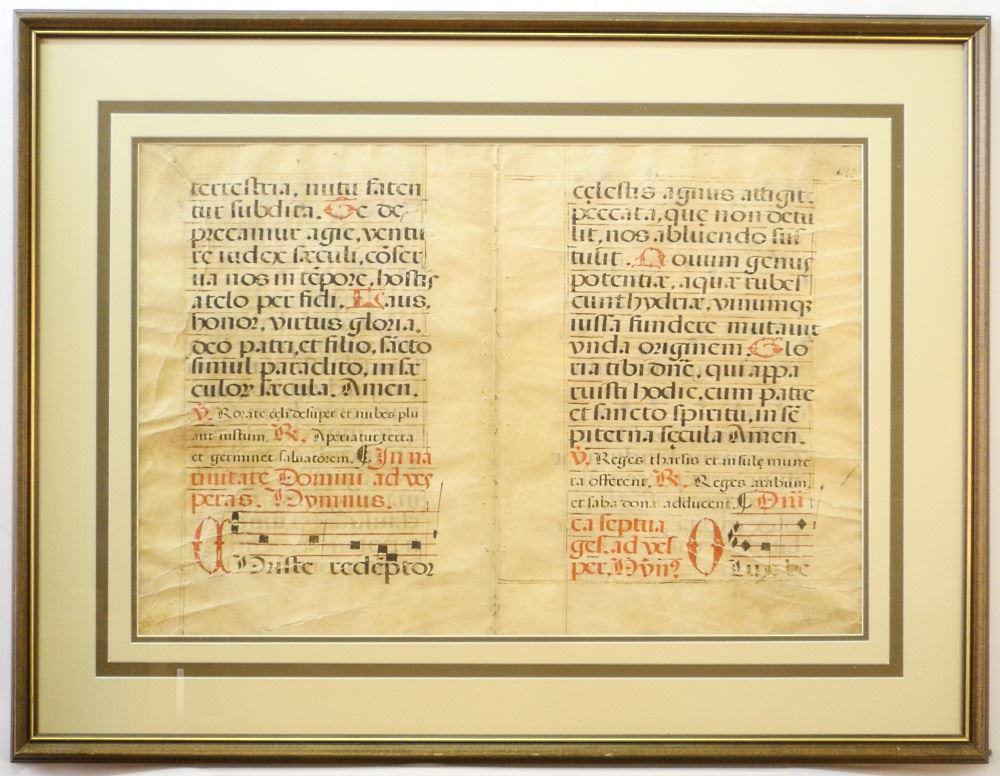 terrestria, nutu faten
tur subdita. Te de
precamur agie, ventu
re iudex sæculi, cõser
ua nos in tẽpore, hostis
atelo per fidi. Laus,
honor, virtus gloria,
deo patri, et filio, sãcto
simul paraclito, in sæ
culoꝝ sæcula. Amen.
℣. Rorate cęli desuper et nubes plu
ant iustum. ℟. Aperiatur terra
et germinet saluatorem. ¶ In na
tiuitate Domini ad ves
peras. Hymnus.
CHriste redẽptor
cęlestis agnus attigit
peccata, que non detu
lit, nos abluendo sus
tulit. Nouum genus
potentiæ, aquæ rubes
cunt hydriæ, vinumqꝫ
iussa fundere mutauit
vnda originem. Glo
ria tibi dñe, qui appa
ruisti hodie, cum patre
et sancto spiritu, in sẽ
piterna sęcula Amen.
℣. Reges tharsis et insulę mune
ra offerent. ℟. Reges arabum,
et saba dona adducent. ¶ Dñi
ca septua
ges. ad ves
per. Hyñ?
O Lux be